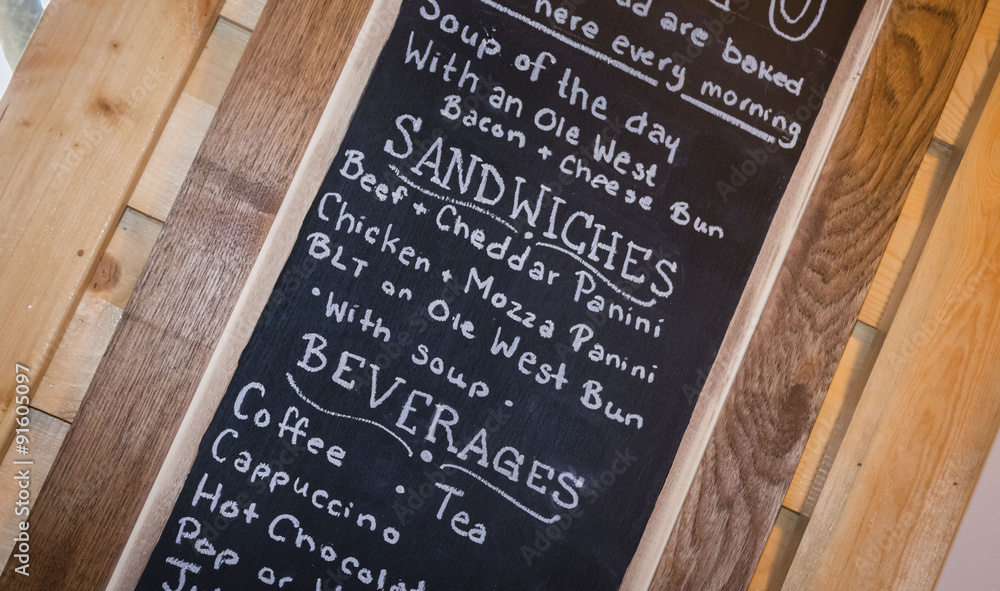 are baked
here every morning
Soup of the day
With an Ole West
Bacon + Cheese Bun
SANDWICHES
Beef + Cheddar Panini
Chicken + Mozza Panini
BLT on Ole West Bun
• With soup •
BEVERAGES
Coffee • Tea
Cappuccino
Hot Chocolate
Pop or
Adobe Stock | #91605097